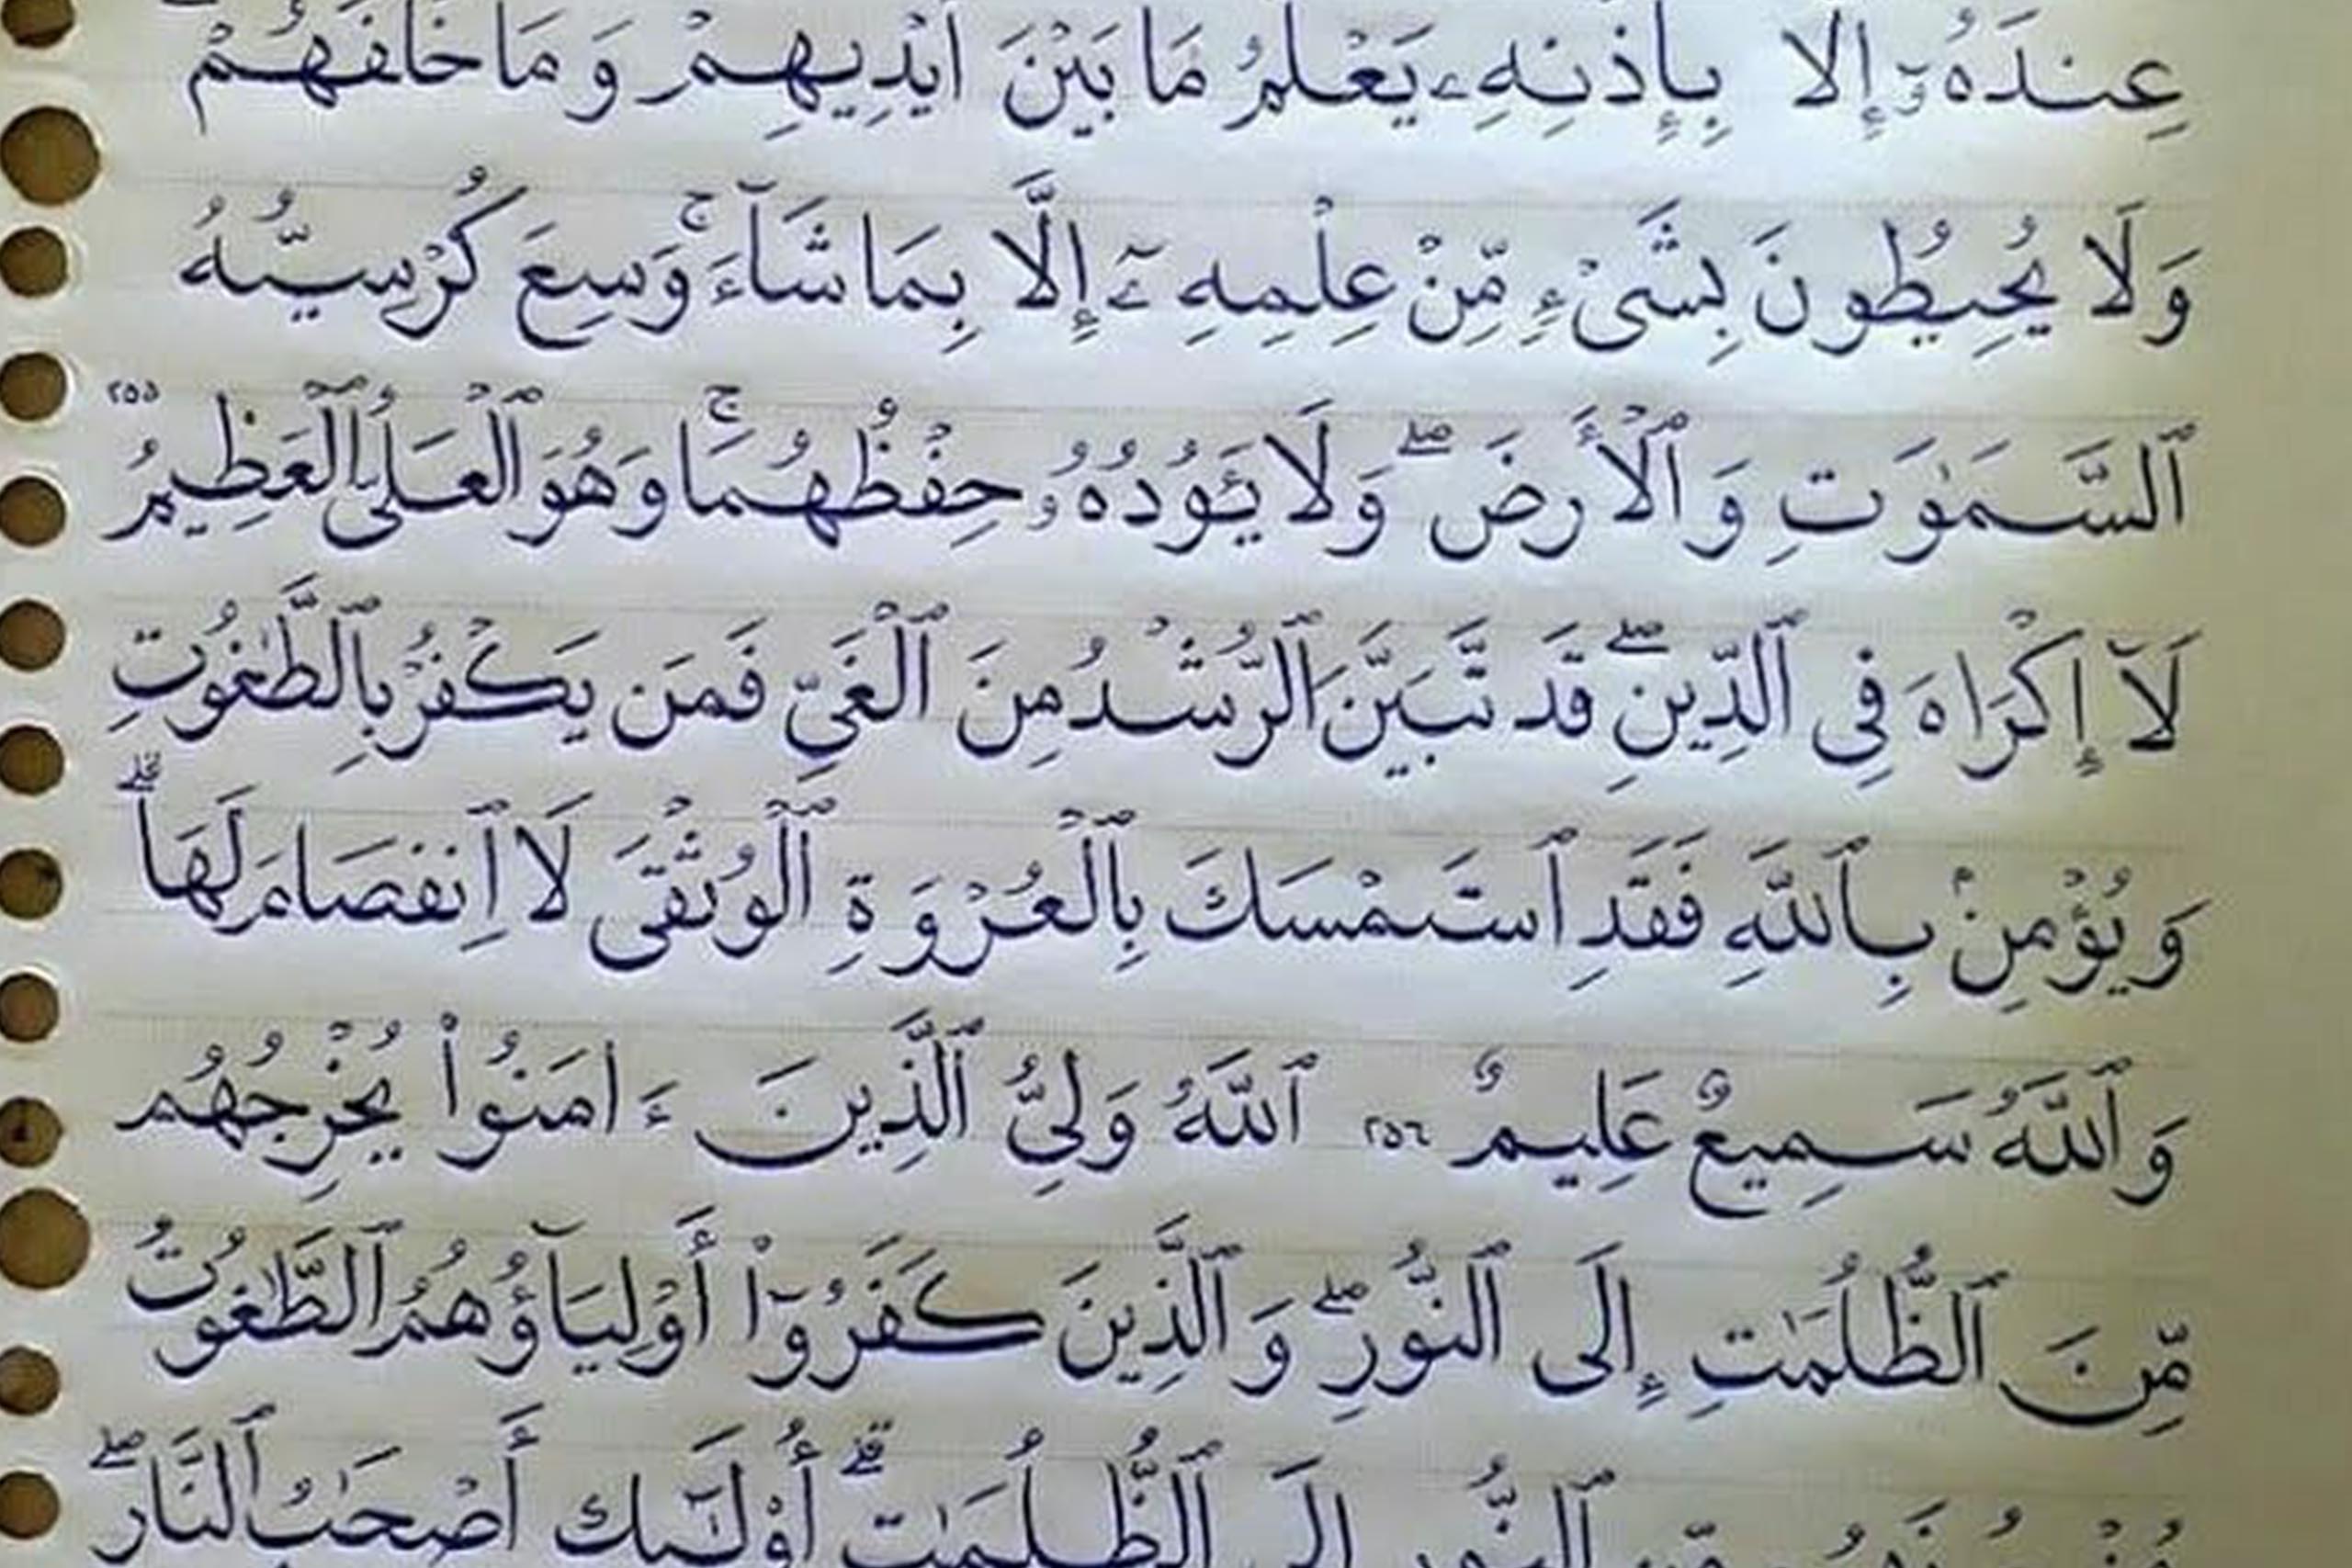 عِندَهُۥٓ إِلَّا بِإِذْنِهِۦ يَعْلَمُ مَا بَيْنَ أَيْدِيهِمْ وَمَا خَلْفَهُمْ
وَلَا يُحِيطُونَ بِشَىْءٍ مِّنْ عِلْمِهِۦٓ إِلَّا بِمَا شَآءَ ۚ وَسِعَ كُرْسِيُّهُ
ٱلسَّمَٰوَٰتِ وَٱلْأَرْضَ ۖ وَلَا يَـُٔودُهُۥ حِفْظُهُمَا ۚ وَهُوَ ٱلْعَلِىُّ ٱلْعَظِيمُ ٢٥٥
لَآ إِكْرَاهَ فِى ٱلدِّينِ ۖ قَد تَّبَيَّنَ ٱلرُّشْدُ مِنَ ٱلْغَىِّ فَمَن يَكْفُرْ بِٱلطَّٰغُوتِ
وَيُؤْمِنۢ بِٱللَّهِ فَقَدِ ٱسْتَمْسَكَ بِٱلْعُرْوَةِ ٱلْوُثْقَىٰ لَا ٱنفِصَامَ لَهَا ۗ
وَٱللَّهُ سَمِيعٌ عَلِيمٌ ٢٥٦ ٱللَّهُ وَلِىُّ ٱلَّذِينَ ءَامَنُوا۟ يُخْرِجُهُم
مِّنَ ٱلظُّلُمَٰتِ إِلَى ٱلنُّورِ ۖ وَٱلَّذِينَ كَفَرُوٓا۟ أَوْلِيَآؤُهُمُ ٱلطَّٰغُوتُ
يُخْرِجُونَهُم مِّنَ ٱلنُّورِ إِلَى ٱلظُّلُمَٰتِ ۗ أُو۟لَٰٓئِكَ أَصْحَٰبُ ٱلنَّارِ ۖ